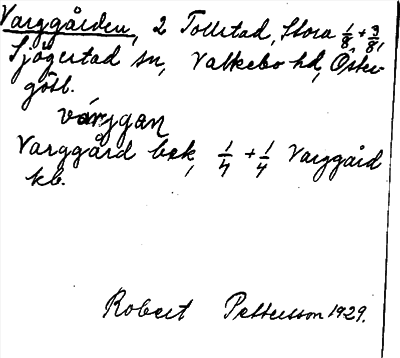 Varggården, 2 Tollstad, Stora 1/8 + 3/8,
Sjögestad sn, Valkebo hd, Öster-
götl.
várjgan
Varggård bek, 1/4 + 1/4 Varggård
kb.
Robert Pettersson 1929.